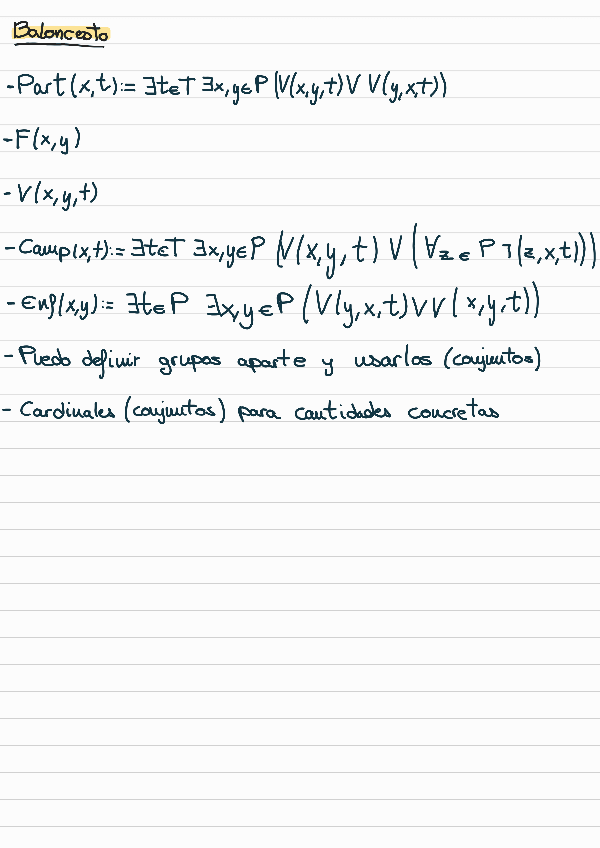 Baloncesto
- Part(x,t):= ∃t∈T ∃x,y∈P (V(x,y,t) V V(y,x,t))
- F(x,y)
- V(x,y,t)
- Camp(x,t):= ∃t∈T ∃x,y∈P (V(x,y,t) V (∀z∈P ¬(z,x,t)))
- Enf(x,y):= ∃t∈P ∃x,y∈P (V(y,x,t) V V(x,y,t))
- Puedo definir grupos aparte y usarlos (conjuntos)
- Cardinales (conjuntos) para cantidades concretas